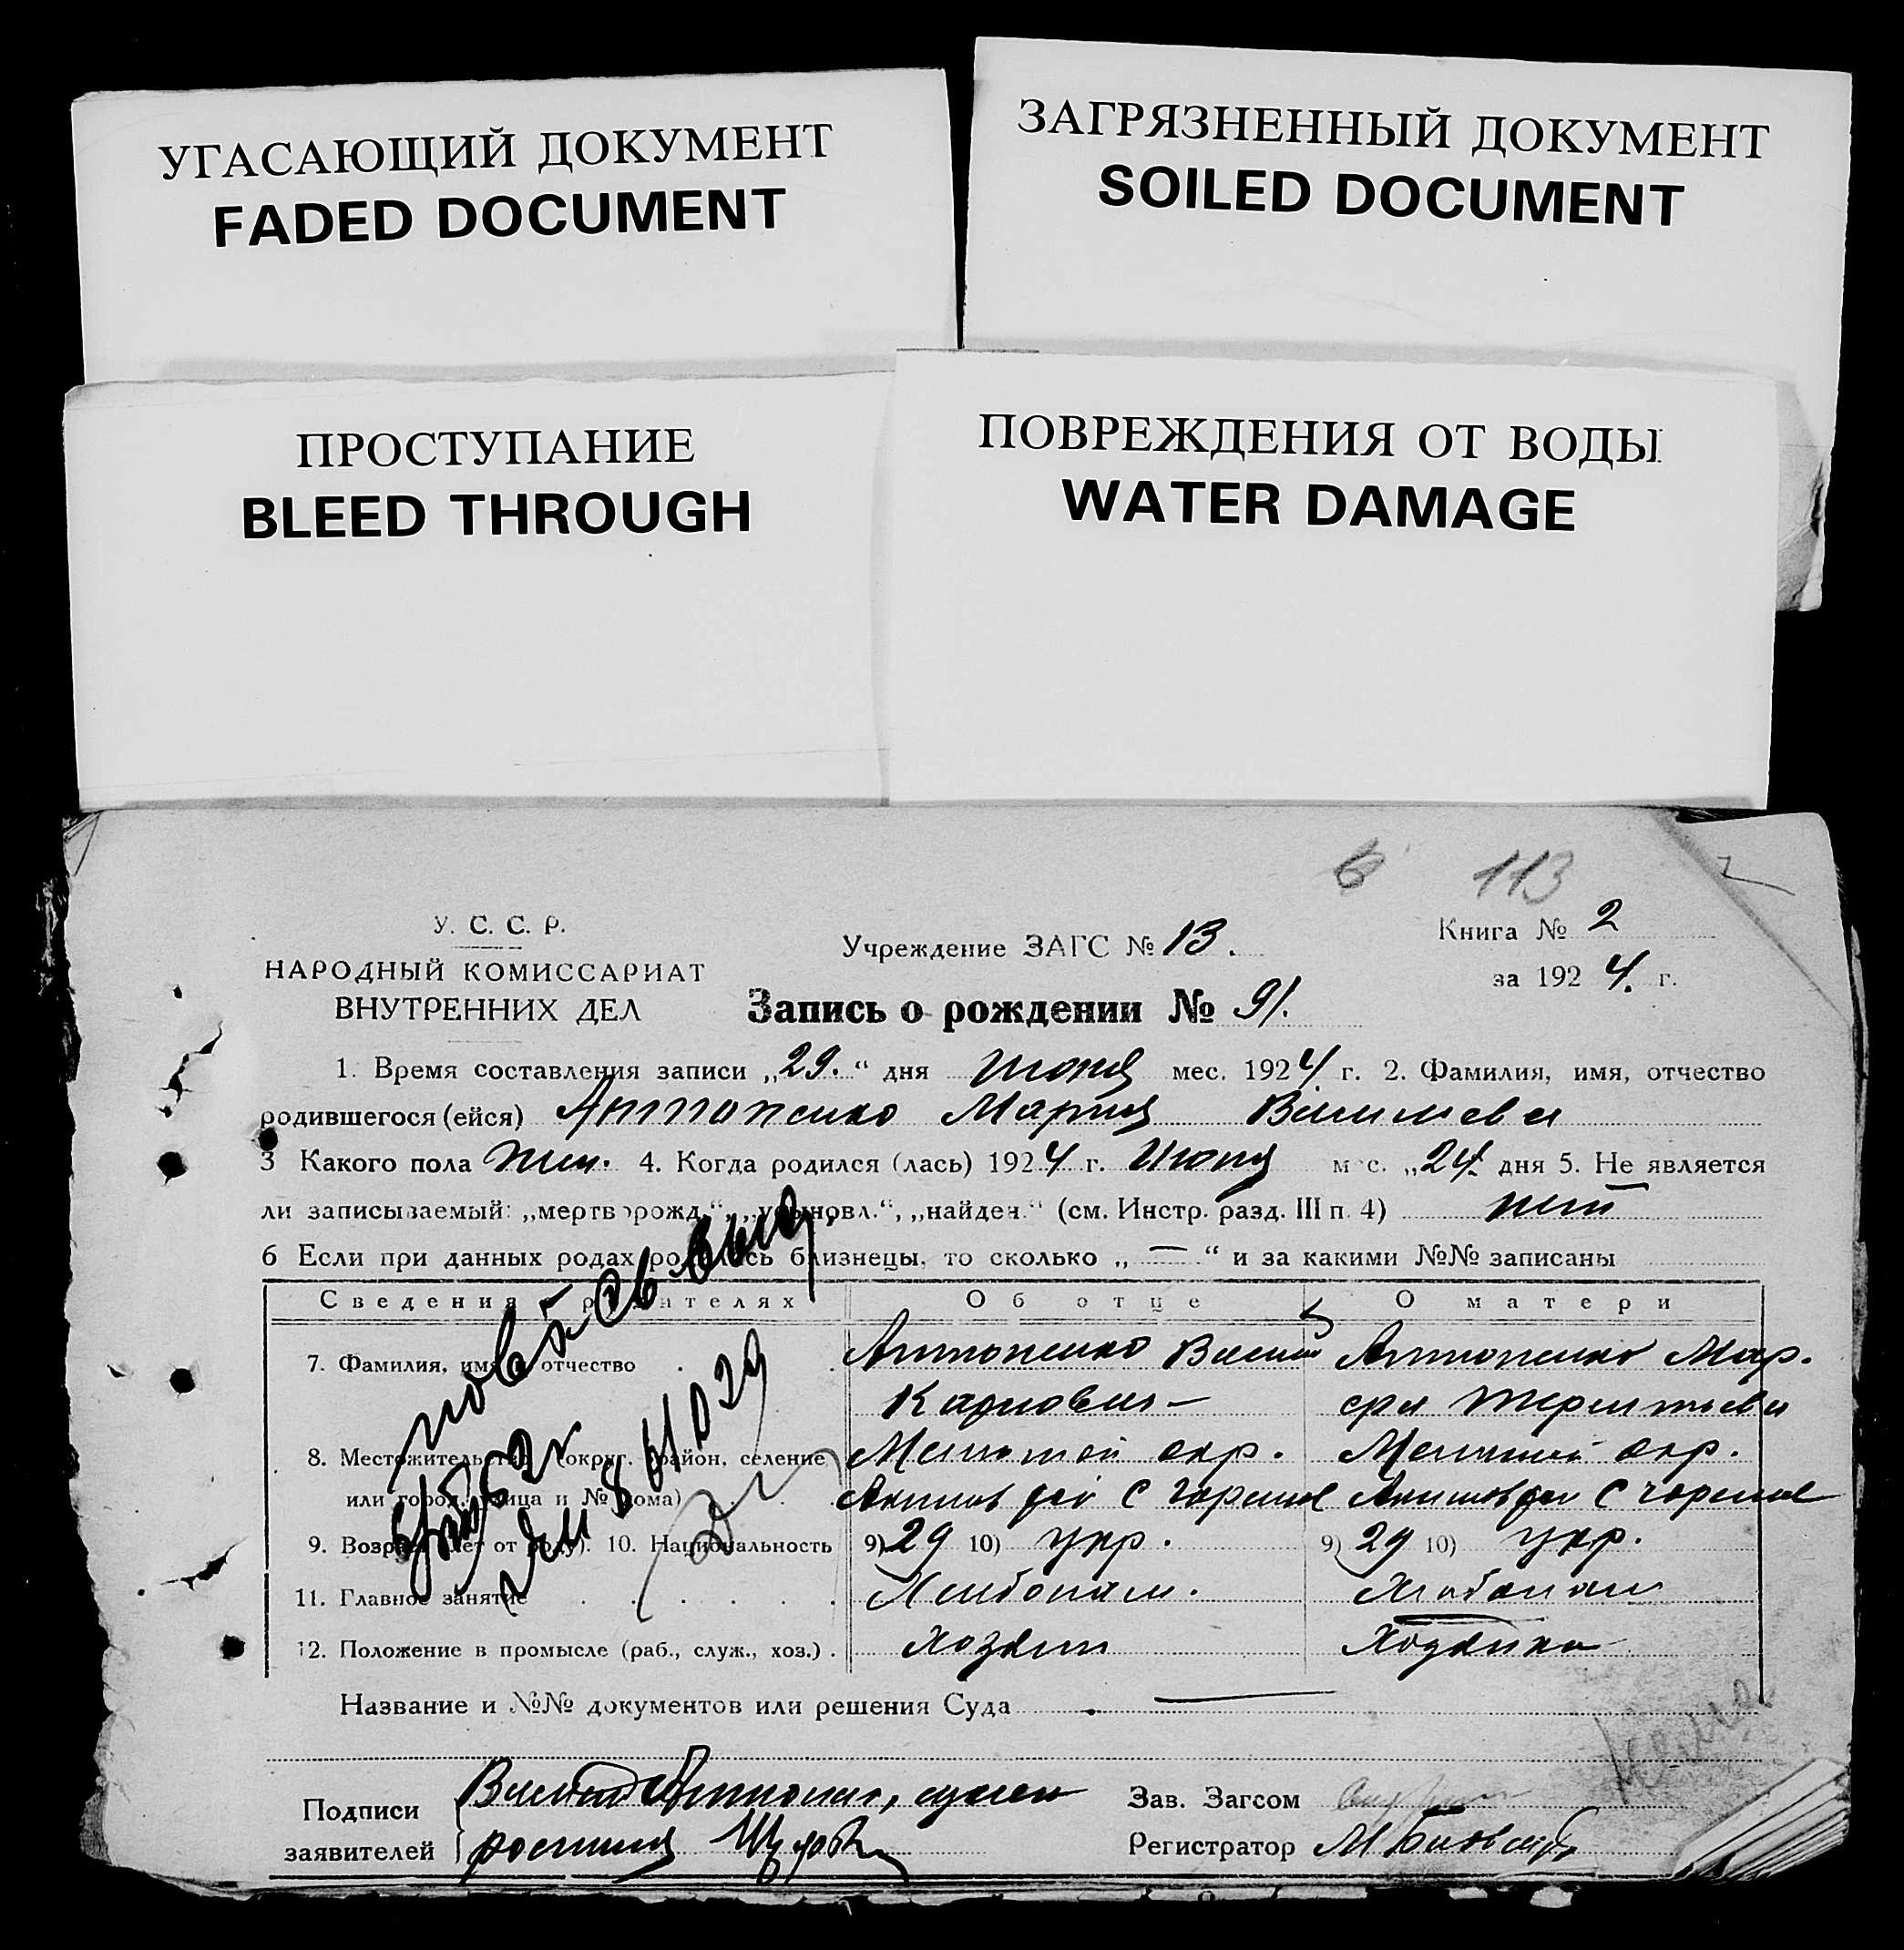 УГАСАЮЩИЙ ДОКУМЕНТ
FADED DOCUMENT
ЗАГРЯЗНЕННЫЙ ДОКУМЕНТ
SOILED DOCUMENT
ПРОСТУПАНИЕ
BLEED THROUGH
ПОВРЕЖДЕНИЯ ОТ ВОДЫ
WATER DAMAGE
113
У. С. С. Р.
НАРОДНЫЙ КОМИССАРИАТ
ВНУТРЕННИХ ДЕЛ
Учреждение ЗАГС № 13.
Книга № 2
за 1924. г.
Запись о рождении № 91.
1. Время составления записи „29.“ дня Июня мес. 1924 г. 2. Фамилия, имя, отчество
родившегося (ейся) Антоненко Мария Васильева
3 Какого пола жен. 4. Когда родился (лась) 1924 г. Июня мес. „24“ дня 5. Не является
ли записываемый: „мертворожд.“, „усыновл.“, „найден.“ (см. Инстр. разд. III п. 4) нет
6 Если при данных родах родились близнецы, то сколько „—“ и за какими №№ записаны
Сведения о родителях Об отце О матери
7. Фамилия, имя и отчество Антоненко Васил Антоненко Мар.
Карпович
8. Местожительство (округ, район, селение Мелитоп окр. Мелитоп окр.
или город, улица и № дома) Акимов рай С Горелое Акимов рай С Горелое
9. Возраст (лет от роду). 10. Национальность 9) 29 10) укр. 9) 29 10) укр.
11. Главное занятие Хлебопаш. Хлебопаш
12. Положение в промысле (раб., служ., хоз.) . Хозяин Хозяйка
Название и №№ документов или решения Суда
Подписи
заявителей
Зав. Загсом
Регистратор